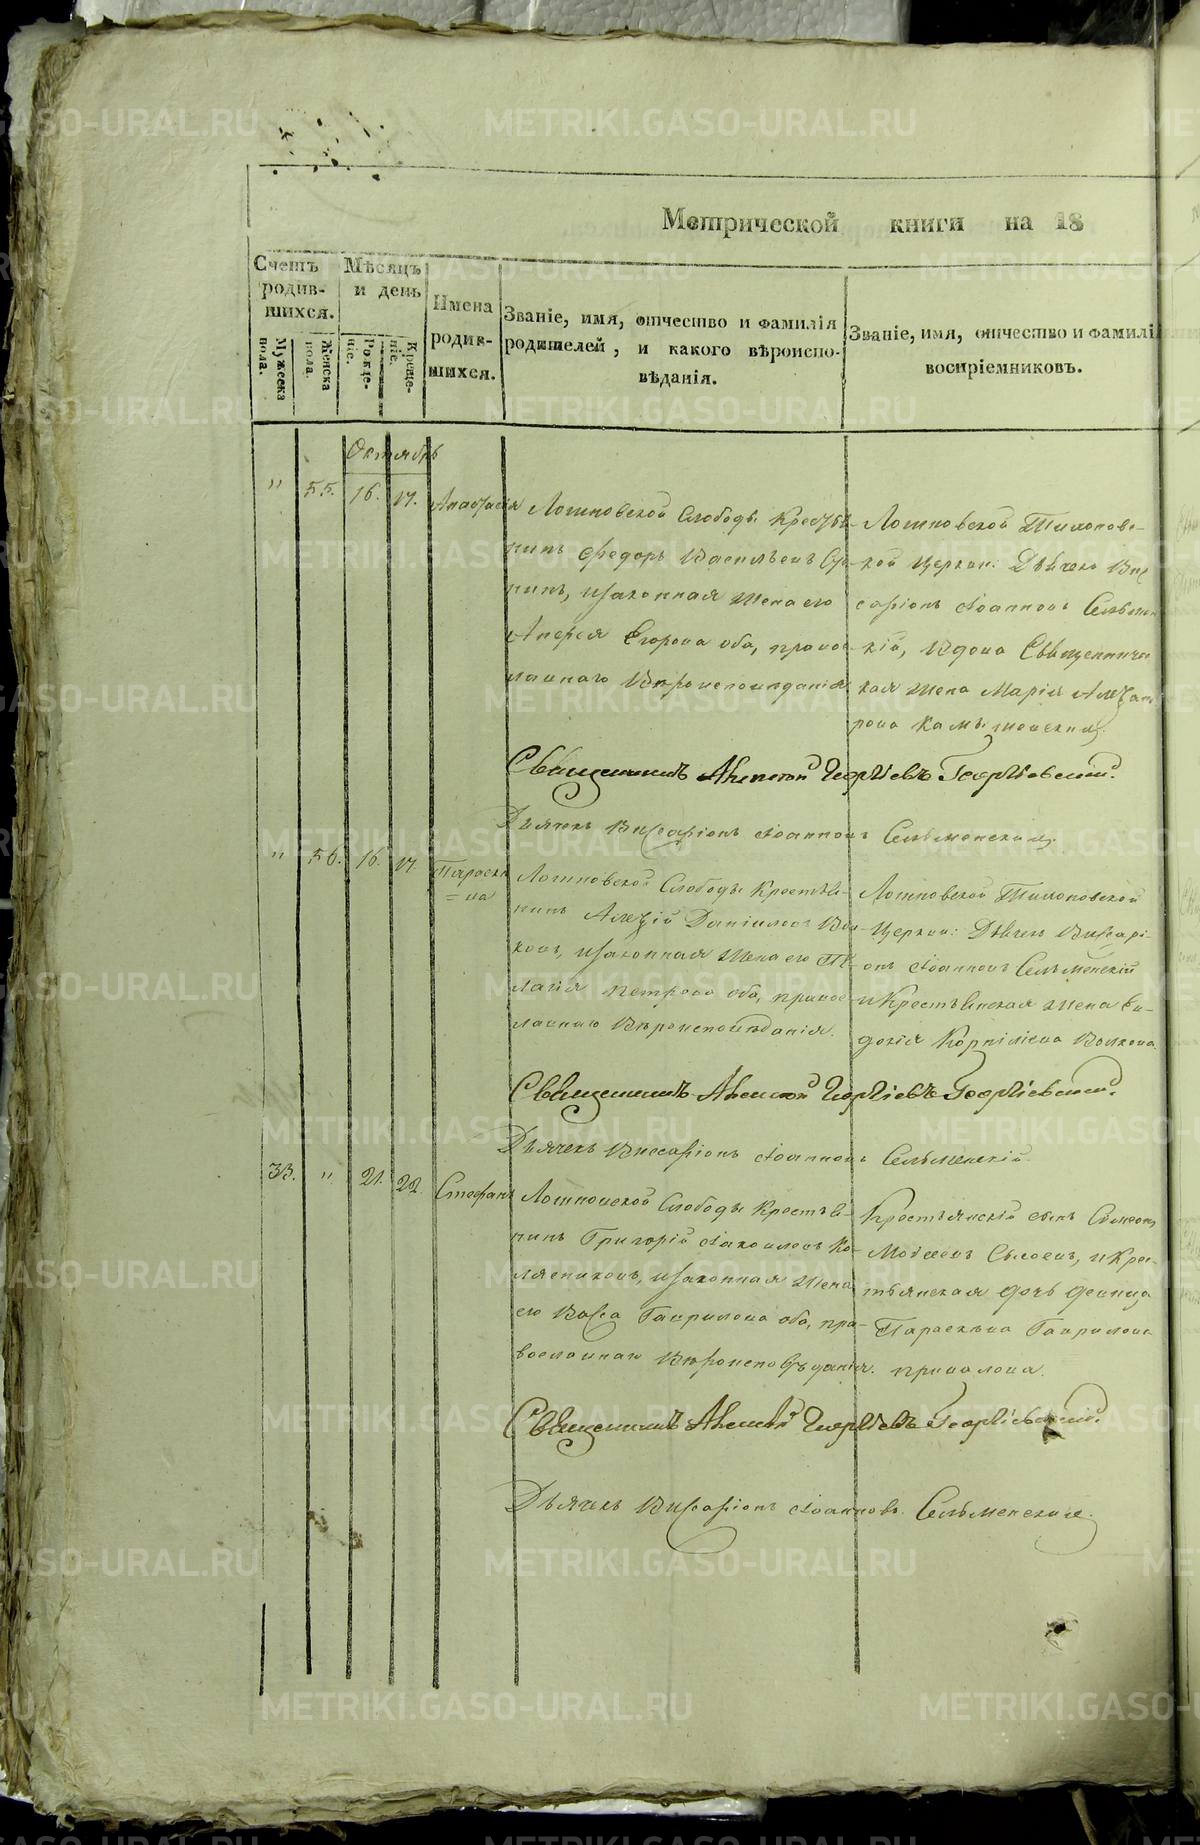 Метрической книги на 18
Счетъ родив-шихся.
Мужеска пола.
Женска пола.
Мѣсяцъ и день
Рожде-ніе.
Креще-ніе.
Имена родив-шихся.
Званіе, имя, отчество и фамилія
родителей, и какого вѣроиспо-
вѣданія.
Званіе, имя, отчество и фамилі
воспріемниковъ.
Октябрь
" 55. 16. 17. Анастасія
Слободы
нинъ Федоръ Васильевъ
нинъ, и законная жена его
Егорова оба, правос
лавнаго Вѣроисповѣданія
Тихоновс-
кой Церкви: Дьячекъ Вис
саріонъ Іоанновъ
кій, Вдова Священниче
кая жена Марія Алекъсан
рова
Священникъ Алексій Георгіевъ Георгіевскій.
Дьячекъ Виссаріонъ Іоанновъ Сельменскій
" 56. 16. 17. Параске
=ва
Слободы Крестья-
нинъ Алексій Даниловъ
ковъ, и законная жена его Пе-
лагія Петрова оба, правос
лавнаго Вѣроисповѣданія.
Тихоновской
Церкви: Дьячекъ Виссарі-
онъ Іоанновъ Сельменскій
и Крестьянская жена Ев-
докія Корниліева Волкова.
Священникъ Алексій Георгіевъ Георгіевскій.
Дьячекъ Виссаріонъ Іоанновъ Сельменскій
33. " 21. 22. Стефанъ
Слободы Крестья-
нинъ Григорій Іаковлевъ Ко-
лясниковъ, и законная жена
его Васса Гаврилова оба, пра-
вославнаго Вѣроисповѣданія.
Крестьянскій сынъ Симеонъ
Моисеевъ и Крес-
тьянская дочь девица
Параскева Гаврилова
Привалова.
Священникъ Алексій Георгіевъ Георгіевскій.
Дьячекъ Виссаріонъ Іоанновъ Сельменскій.
METRIKI.GASO-URAL.RU